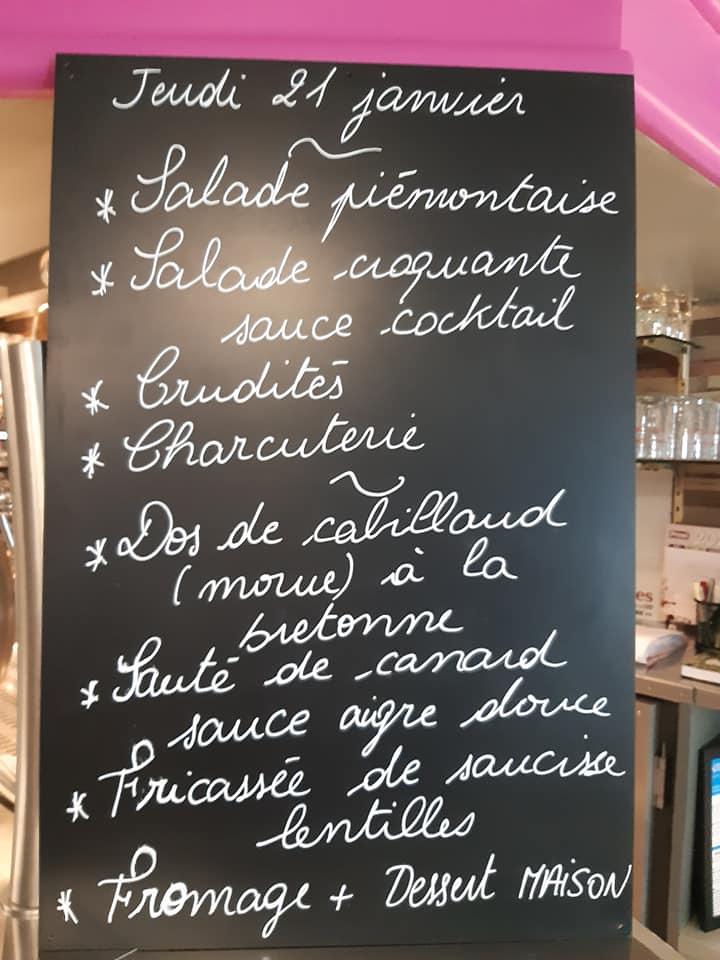 Jeudi 21 janvier
* Salade piémontaise
* Salade croquante
sauce cocktail
* Crudités
* Charcuterie
* Dos de cabillaud
(morue) à la
bretonne
* Sauté de canard
sauce aigre douce
* Fricassée de saucisse
lentilles
* Fromage + Dessert MAISON